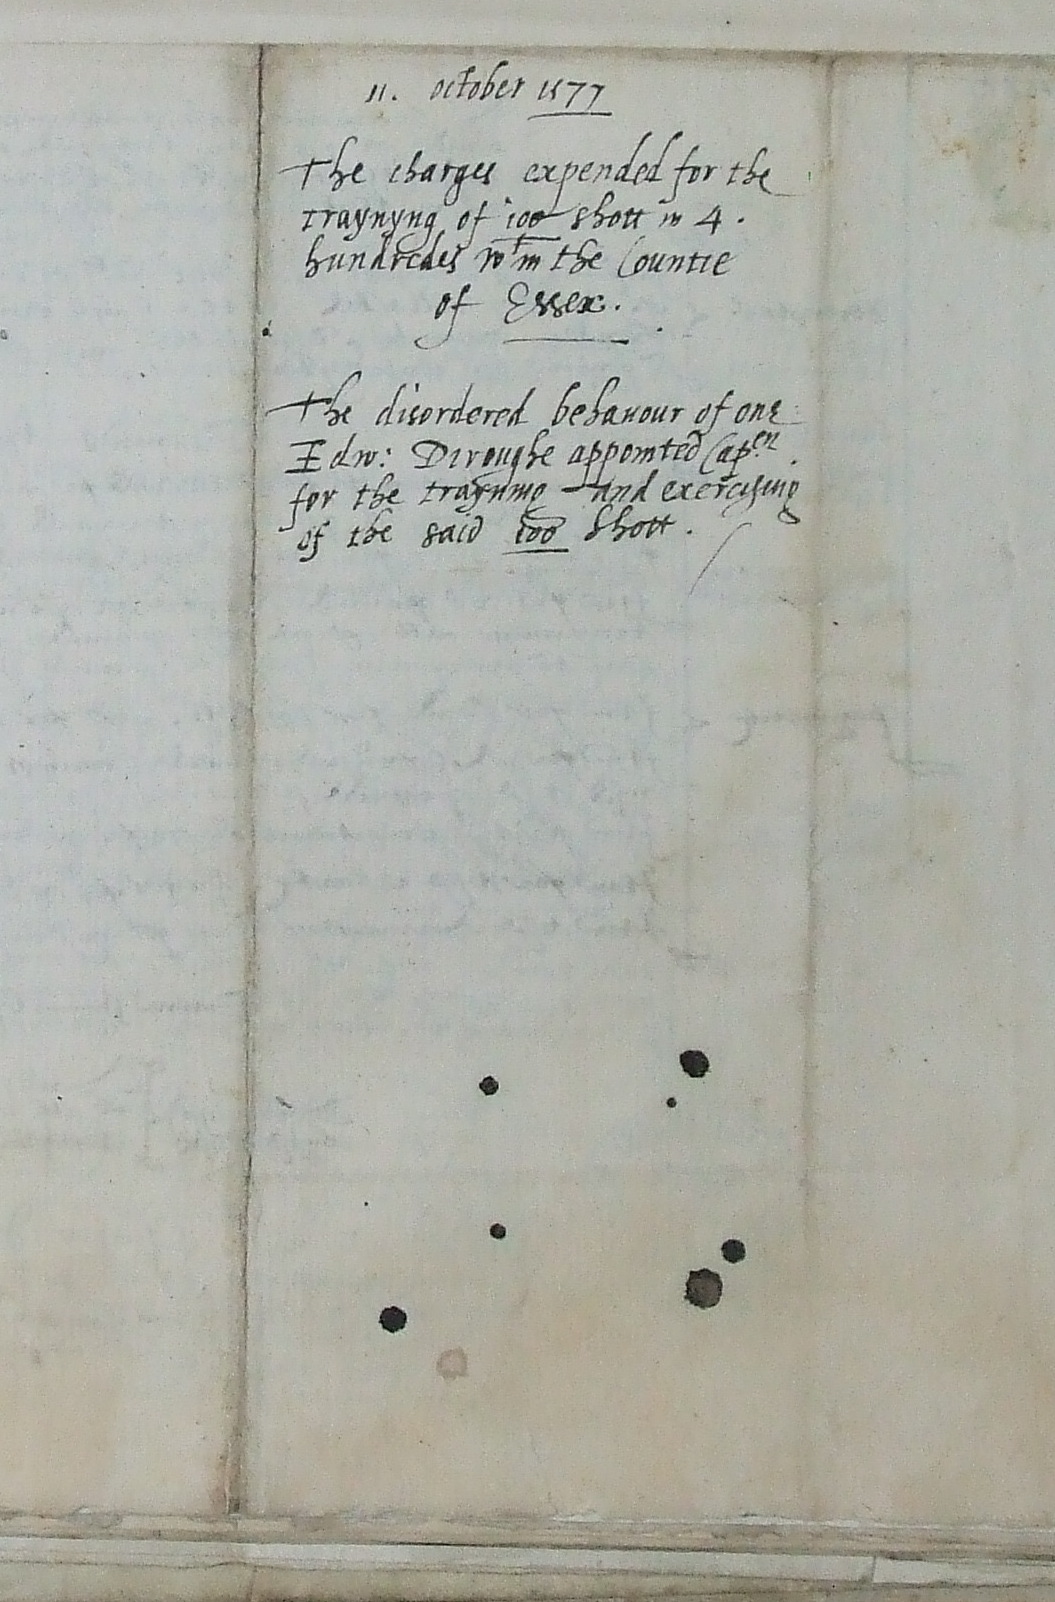 11. october 1577
The charges expended for the
traynyng of 100 shott in 4.
hundredes wtin the Countie
of Essex.
The disordered behauour of one
Edw: Diroughe appointed Capen.
for the trayning and exercysing
of the said 100 shott.